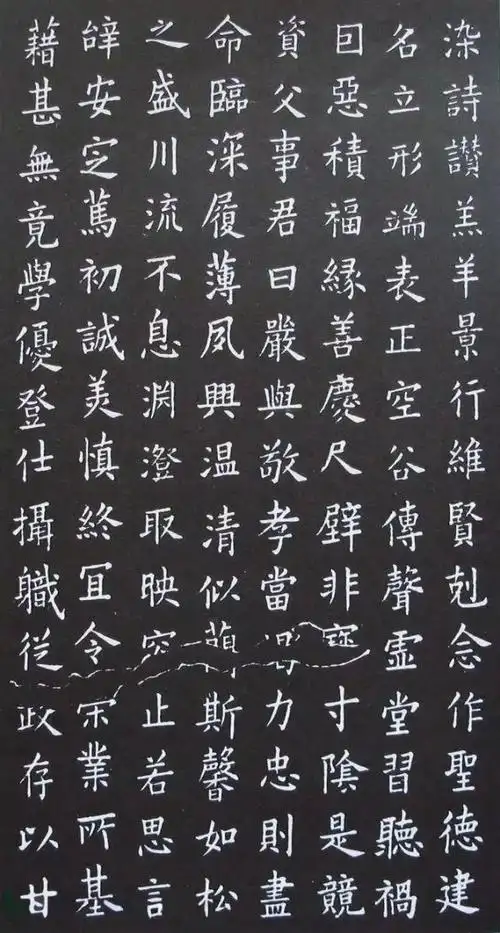 染詩讃羔羊景行維賢剋念作聖徳建
名立形端表正空谷傳聲虚堂習聽禍
囙惡積福縁善慶尺璧非寳寸陰是競
資父事君曰嚴與敬孝當竭力忠則盡
命臨深履薄夙興温清似蘭斯馨如松
之盛川流不息渊澄取映容止若思言
辝安定篤初誠美慎終冝令榮業所基
藉甚無竟學優登仕攝職従政存以甘